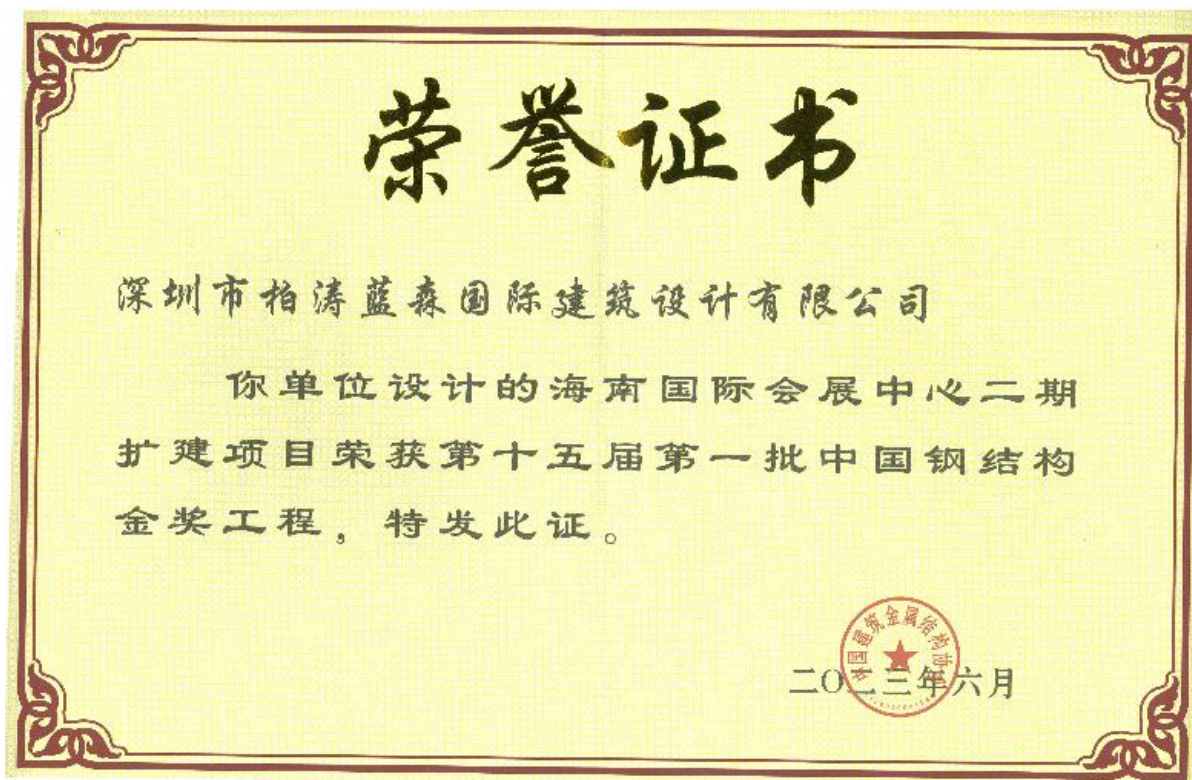 荣誉证书
深圳市柏涛蓝森国际建筑设计有限公司
你单位设计的海南国际会展中心二期
扩建项目荣获第十五届第一批中国钢结构
金奖工程，特发此证。
中国建筑金属结构协会
二〇二三年六月